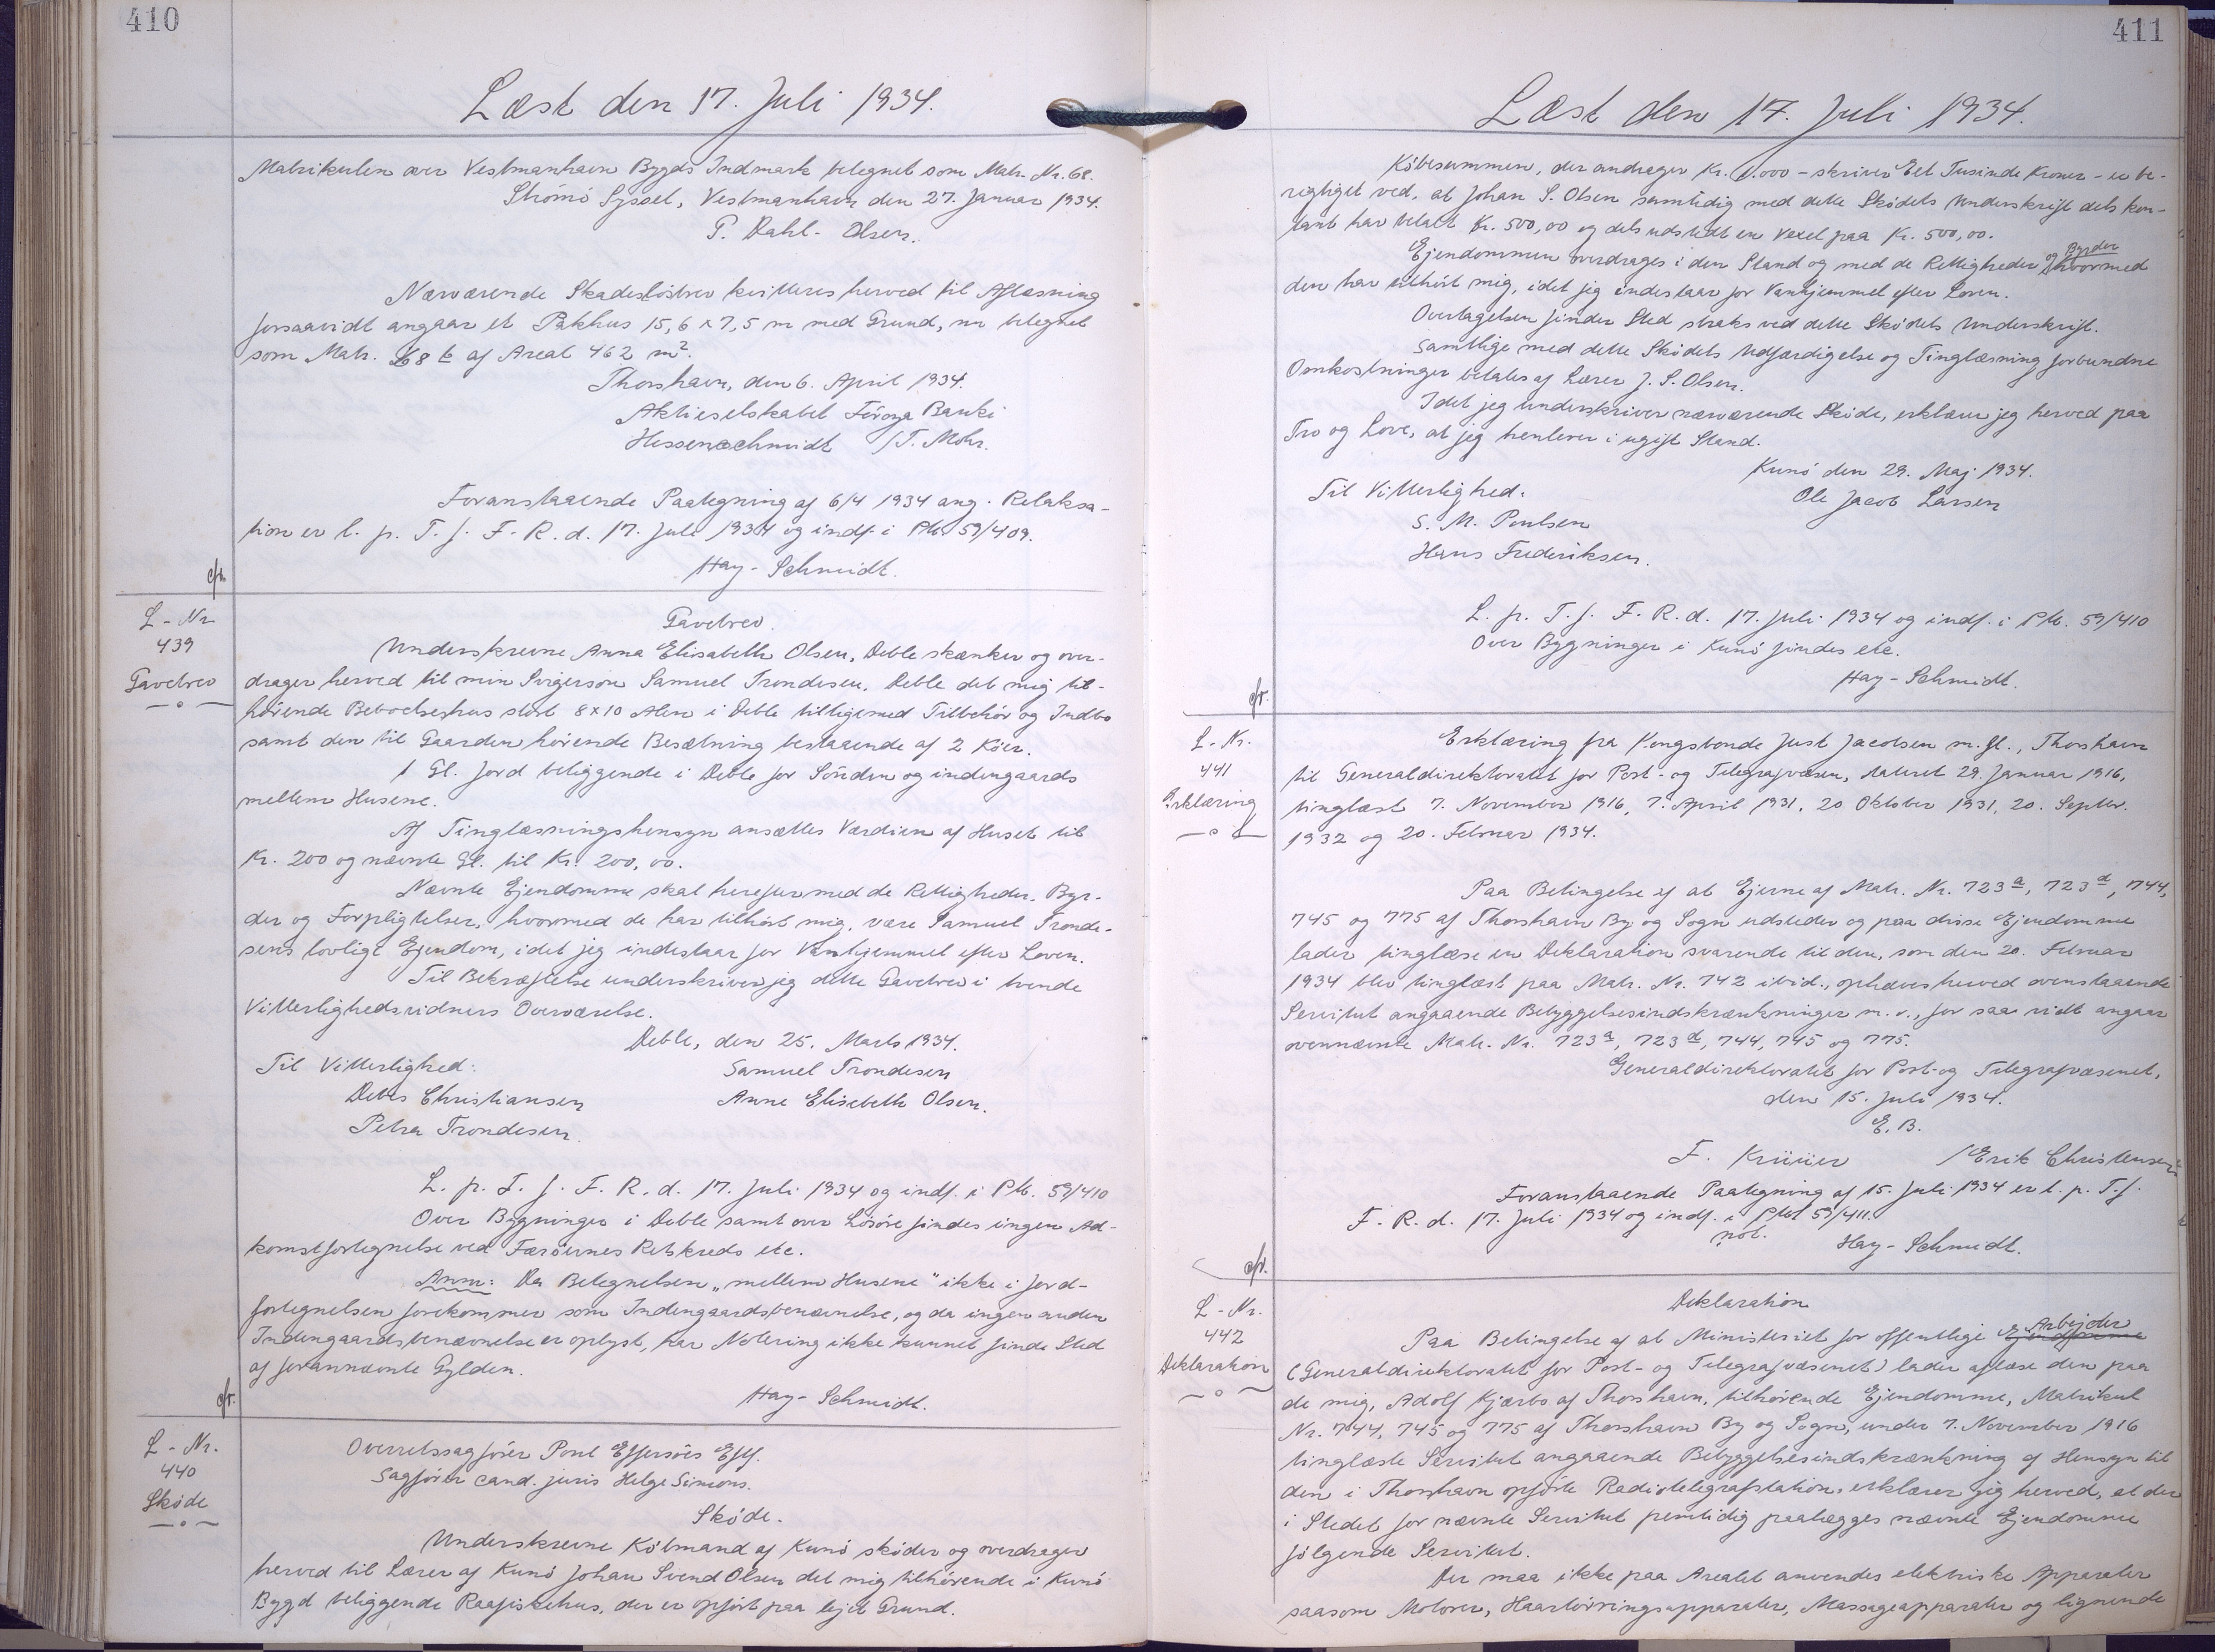 410
Læst den 17. Juli 1934.
Matrikulen over Vestmanhavn Bygds Indmark betegnet som Matr. Nr. 68.
Strömö Syssel, Vestmanhavn den 27. Januar 1934.
P. Dahl-Olsen.
Nærværende Skadeslösbrev kvitteres herved til Aflæsning
forsaavidt angaar et Pakhus 15,6 x 7,5 m med Grund, nu betegnet
som Matr. 68 b af Areal 462 m².
Thorshavn, den 6. April 1934.
Aktieselskabet Föroya Banki
Hessenschmidt /T. Mohr.
Foranstaaende Paategning af 6/4 1934 ang. Relaksa-
tion er l. p. T. f. F. R. d. 17. Juli 1934 og indf. i Pb. 59/409.
Hay-Schmidt.
cfr.
L-Nr
439
Gavebrev
Gavebrev.
Underskrevne Anna Elisabeth Olsen, Deble skænker og over-
drager herved til min Svigersön Samuel Trondesen, Deble det mig til-
hörende Beboelseshus stort 8x10 Alen i Deble tilligemed Tilbehör og Indbo
samt den til Gaarden hörende Besætning bestaaende af 2 Köer.
1 Gl. Jord beliggende i Deble for Sönden og indengaards
mellem Husene.
Af Tinglæsningshensyn ansættes Værdien af Huset til
Kr. 200 og nævnte Gl. til Kr. 200,00.
Nævnte Ejendomme skal herefter med de Rettigheder, Byr-
der og Forpligtelser, hvormed de har tilhört mig, være Samuel Tronde-
sens lovlige Ejendom, idet jeg indestaar for Vanhjemmel efter Loven.
Til Bekræftelse underskriver jeg dette Gavebrev i tvende
Vitterlighedsvidners Overværelse.
Deble, den 25. Marts 1934.
Til Vitterlighed: Samuel Trondesen
Debes Christiansen Anne Elisebeth Olsen.
Petra Trondesen.
L. p. T. f. F. R. d. 17. Juli 1934 og indf. i Pb. 59/410
Over Bygninger i Deble samt over Lösöre findes ingen Ad-
komstfortegnelse ved Færöernes Retskreds etc.
Anm: Da Betegnelsen „mellem Husene" ikke i Jord-
fortegnelsen forekommer som Indengaardsbenævnelse, og da ingen anden
Indengaardsbenævnelse er oplyst, har Notering ikke kunnet finde Sted
af forannævnte Gylden.
Hay-Schmidt.
cfr.
L-Nr.
440
Sköde
Overretssagförer Poul Effersöes Eftf.
Sagförer cand. juris Helge Simons.
Sköde.
Underskrevne Köbmand af Kunö sköder og overdrager
herved til Lærer af Kunö Johan Svend Olsen det mig tilhörende i Kunö
Bygd beliggende Raafiskehus, der er opfört paa lejet Grund.
411
Læst den 17. Juli 1934.
Köbesummen, der andrager Kr. 1.000 - skriver Eet Tusinde Kroner - er be-
rigtiget ved, at Johan S. Olsen samtidig med dette Sködets Underskrift dels kon-
tant har betalt Kr. 500,00 og dels udstedt en Vexel paa Kr. 500,00.
Ejendommen overdrages i den Stand og med de Rettigheder og Byrder hvormed
den har tilhört mig, idet jeg indestaar for Vanhjemmel efter Loven.
Overtagelsen finder Sted straks ved dette Sködets Underskrift.
Samtlige med dette Sködets Udfærdigelse og Tinglæsning forbundne
Omkostninger betales af Lærer J. S. Olsen.
Idet jeg underskriver nærværende Sköde, erklærer jeg herved paa
Tro og Love, at jeg henlever i ugift Stand.
Kunö den 29. Maj 1934.
Til Vitterlighed: Ole Jacob Larsen
S. M. Poulsen
Hans Frederiksen.
L. p. T. f. F. R. d. 17. Juli 1934 og indf. i Pb. 59/410
Over Bygninger i Kunö findes etc.
Hay-Schmidt.
cfr.
L-Nr.
441
Erklæring
Erklæring fra Kongsbonde Just Jacobsen m.fl., Thorshavn
til Generaldirektoratet for Post- og Telegrafvæsen, dateret 29. Januar 1916,
tinglæst 7. November 1916, 7. April 1931, 20 Oktober 1931, 20. Septbr.
1932 og 20. Februar 1934.
Paa Betingelse af at Ejerne af Matr. Nr. 723 a, 723 d, 744,
745 og 775 af Thorshavn By og Sogn udsteder og paa disse Ejendomme
lader tinglæse en Deklaration svarende til den, som den 20. Februar
1934 blev tinglæst paa Matr. Nr. 742 ibid., ophæves herved ovenstaaende
Servitut angaaende Bebyggelsesindskrænkninger m.v., for saa vidt angaar
ovennævnte Matr. Nr. 723 a, 723 d, 744, 745 og 775.
Generaldirektoratet for Post- og Telegrafvæsenet,
den 15. Juli 1934.
E.B.
F. Krüüer /Erik Christensen
Foranstaaende Paategning af 15. Juli 1934 er l. p. T. f.
F. R. d. 17. Juli 1934 og indf. i Pb. 59/411.
not.
Hay-Schmidt.
cfr.
L-Nr.
442
Deklaration
Deklaration
Paa Betingelse af at Ministeriet for offentlige Ejendomme Arbejder
(Generaldirektoratet for Post- og Telegrafvæsenet) lader aflæse den paa
de mig, Adolf Kjærbo af Thorshavn, tilhörende Ejendomme, Matrikul
Nr. 744, 745 og 775 af Thorshavn By og Sogn, under 7. November 1916
tinglæste Servitut angaaende Bebyggelsesindskrænkning af Hensyn til
den i Thorshavn opförte Radiotelegrafstation, erklærer jeg herved, at der
i Stedet for nævnte Servitut fremtidig paalægges nævnte Ejendomme
följgende Servitut.
Der maa ikke paa Arealet anvendes elektriske Apparater
saasom Motorer, Haartörringsapparater, Massageapparater og lignende